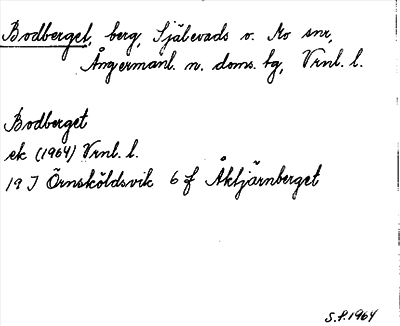 Bodberget, berg, Själevads o. Mo snr,
Ångermanl. n. doms. tg, Vrnl. l.
Bodberget
ek (1964) Vrnl. l.
19 J Örnsköldsvik 6 f Åktjärnberget
S.P. 1964